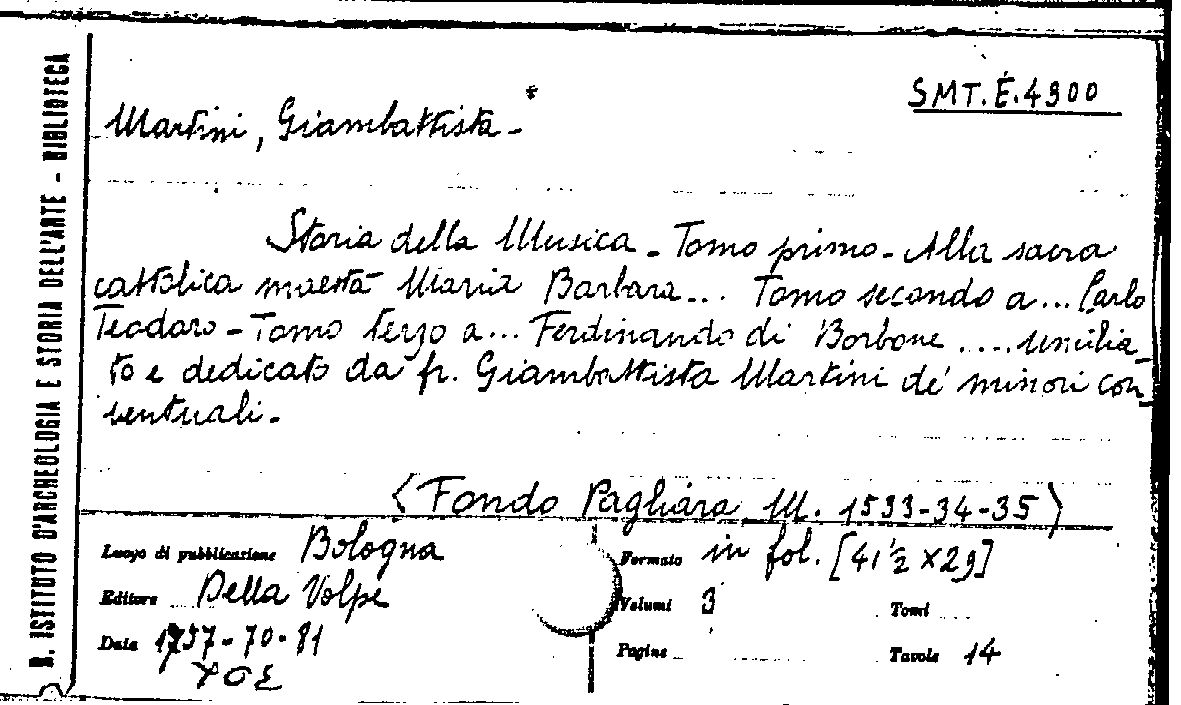 R. ISTITUTO D'ARCHEOLOGIA E STORIA DELL'ARTE - BIBLIOTECA
SMT.E.4900
Martini, Giambattista -
Storia della Musica - Tomo primo - Alla sacra
cattolica maestà Maria Barbara... Tomo secondo a... Carlo
Teodoro - Tomo terzo a... Ferdinando di Borbone .... umilia-
to e dedicato da fr. Giambattista Martini de' minori con-
ventuali -
(Fondo Pagliara M. 1533-34-35)
Luogo di pubblicazione Bologna
Formato in fol. [41½ X29]
Editore Della Volpe
Volumi 3
Tomi
Data 1757-70-81
Pagine
Tavole 14